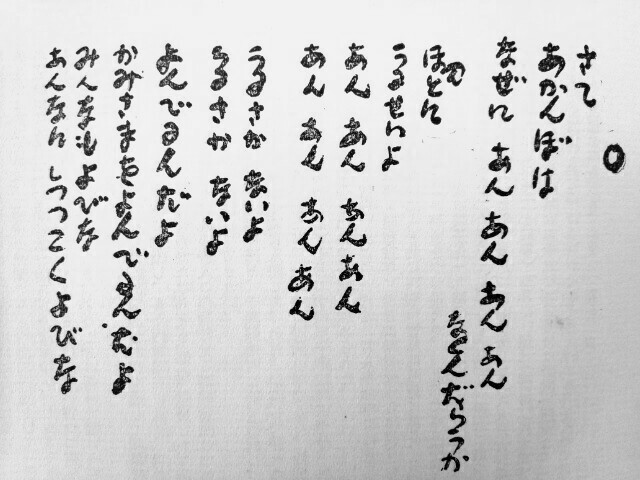 ○
さて
あかんぼは
なぜに あん あん あん あん
なくんだらうか
ほんとに
うるせいよ
あん あん あんあん
あん あん あんあん
うるさか ないよ
うるさか ないよ
よんでるんだよ
かみさまをよんでるんだよ
みんなもよびな
あんなに しつつこくよびな